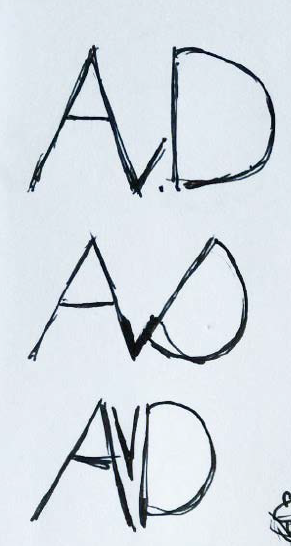 AVD
AVD
AVD